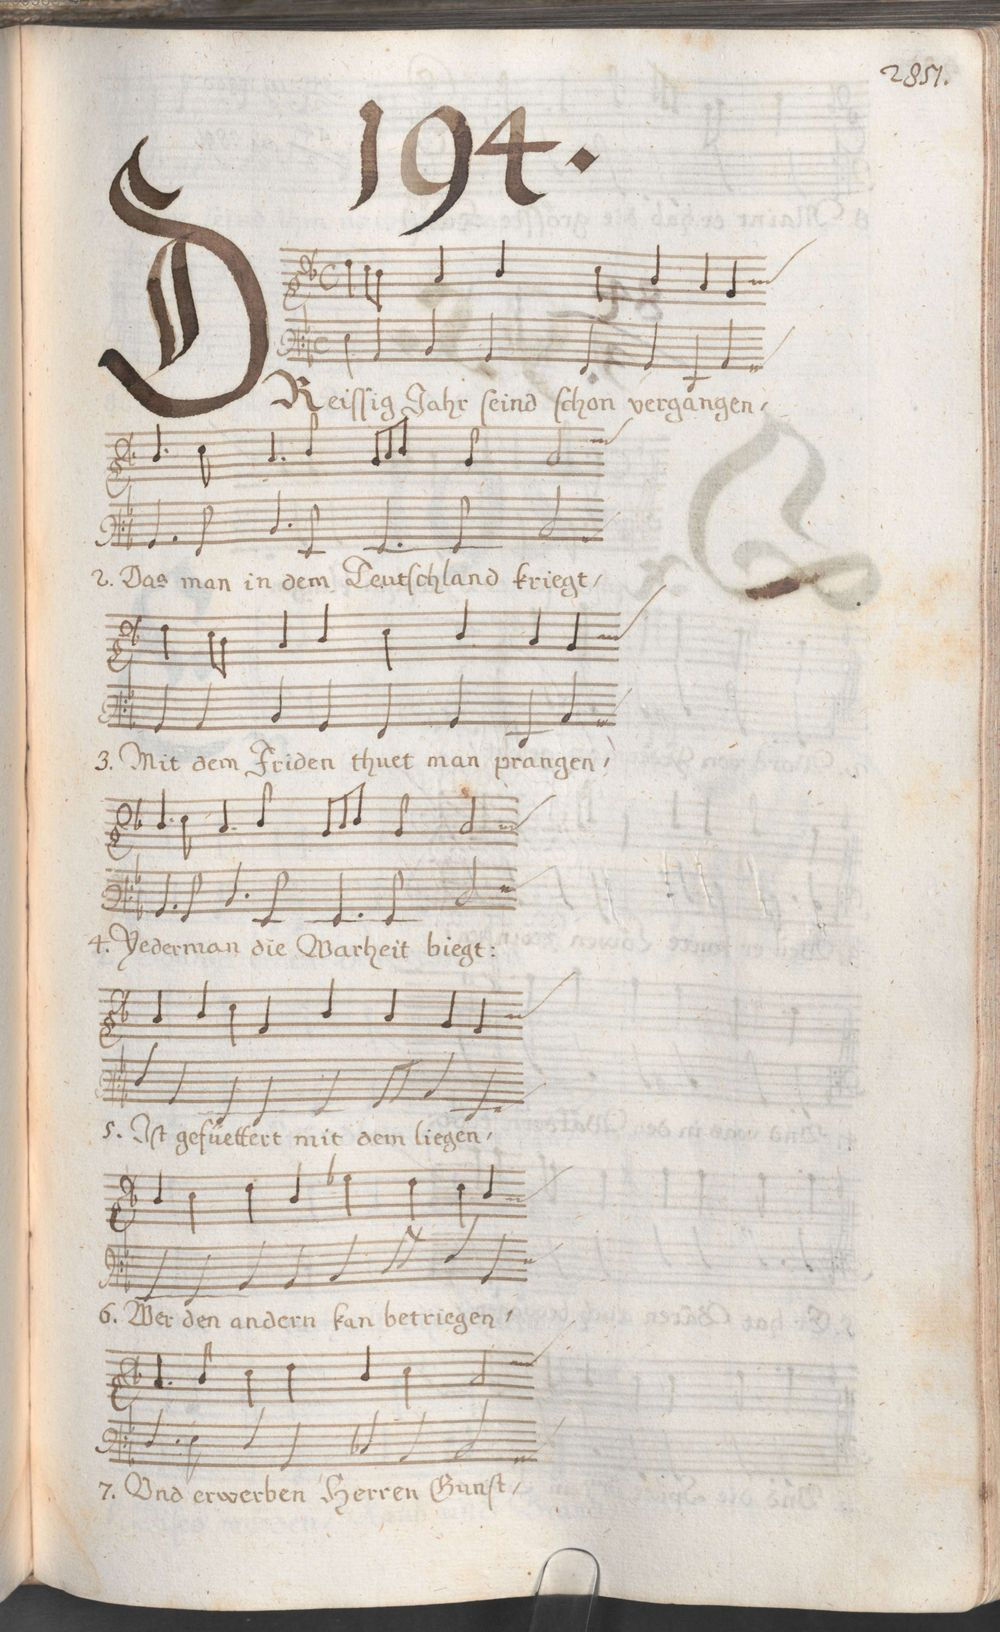 2851.
194.
DReissig Jahr seind schon vergangen,
2. Das man in dem Teutschland kriegt,
3. Mit dem Friden thuet man prangen,
4. Yederman die Warheit biegt:
5. Ist gefüettert mit dem liegen,
6. Wer den andern kan betriegen,
7. Vnd erwerben Herren Gunst,